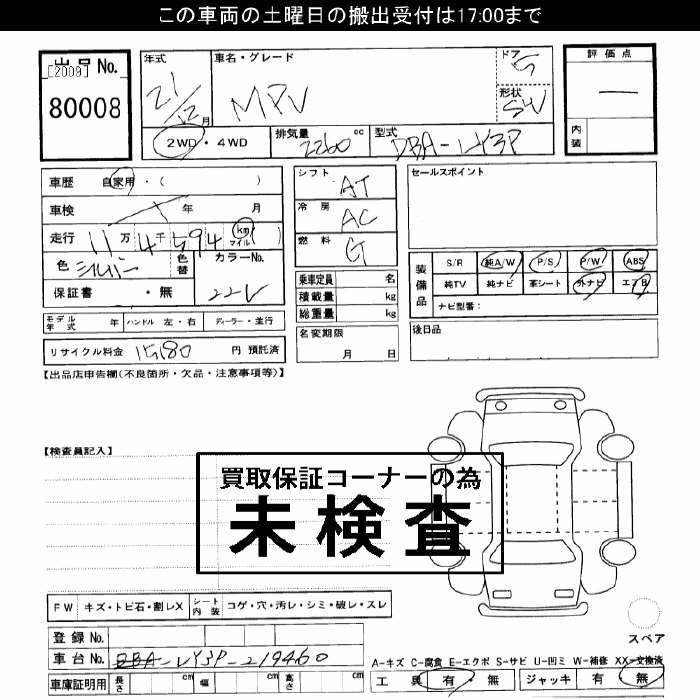 この車両の土曜日の搬出受付は17:00まで
出品 No.
[2009]
80008
年式
21/12 月
車名・グレード
MPV
ドア
5
形状
SW
評価点
—
内装
2WD・4WD
排気量
2260 cc
型式
DBA-LY3P
車歴 自家用・( )
車検 年 月
走行 11万4千594 km マイル
色 シルバー
色替
カラーNo.
22V
保証書 ・無
モデル年式 年
ハンドル 左・右
ディーラー・並行
リサイクル料金 15180 円 預託済
シフト AT
冷房 AC
燃料 G
乗車定員 名
積載量 kg
総重量 kg
名変期限
月 日
セールスポイント
装備品
S/R 純A/W P/S P/W ABS
純TV 純ナビ 革シート 外ナビ エアB
ナビ型番:
後日品
【出品店申告欄(不良箇所・欠品・注意事項等)】
【検査員記入】
買取保証コーナーの為
未検査
FW キズ・トビ石・割レX
シート内装 コゲ・穴・汚レ・シミ・破レ・スレ
登録 No.
車台 No. DBA-LY3P-219460
車庫証明用 長さ cm 幅 cm 高さ cm
スペア
A-キズ C-腐食 E-エクボ S-サビ U-凹ミ W-補修 XX-交換済
工具 有・無 ジャッキ 有・無